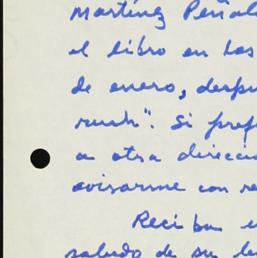 Martínez Peñal
el libro en los
de enero, despu
rush". Si pref
a otra direcci
avisarme con
Reciba
saludo de su